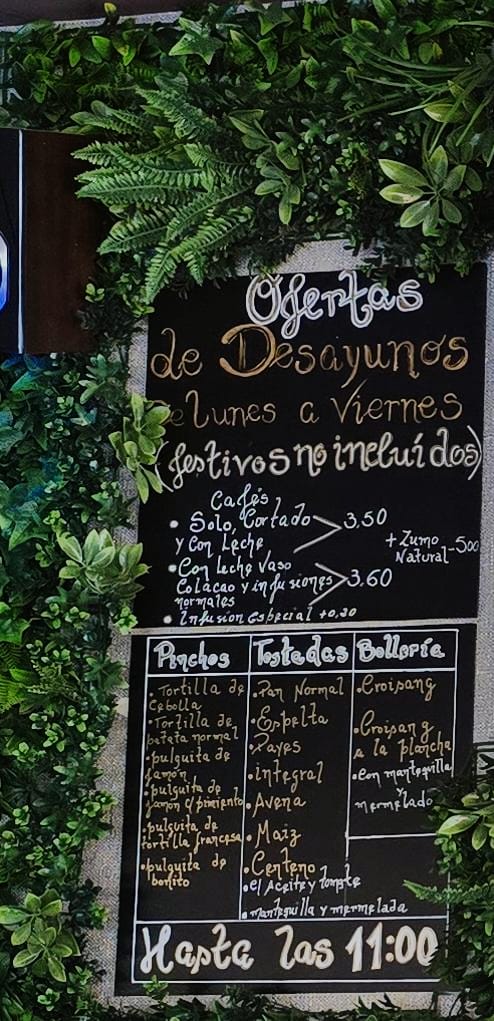 Ofertas
de Desayunos
De lunes a viernes
(festivos no incluídos)
Cafés
• Solo, Cortado
y Con Leche
3.50
• Con leche Vaso
Colacao y infusiones
normales
3.60
+ Zumo
Natural - 500
• Infusion Especial +0,20
Pinchos
• Tortilla de
Cebolla
• Tortilla de
patata normal
• pulguita de
jamón
• pulguita de
jamón c/ pimiento
• pulguita de
tortilla francesa
• pulguita de
bonito
Tostadas
• Pan Normal
• Espelta
• Payes
• integral
• Avena
• Maiz
• Centeno
• c/ Aceite y Tomate
• mantequilla y mermelada
Bollería
• Croisang
• Croisang
a la plancha
• Con mantequilla
y
mermelado
Hasta las 11:00